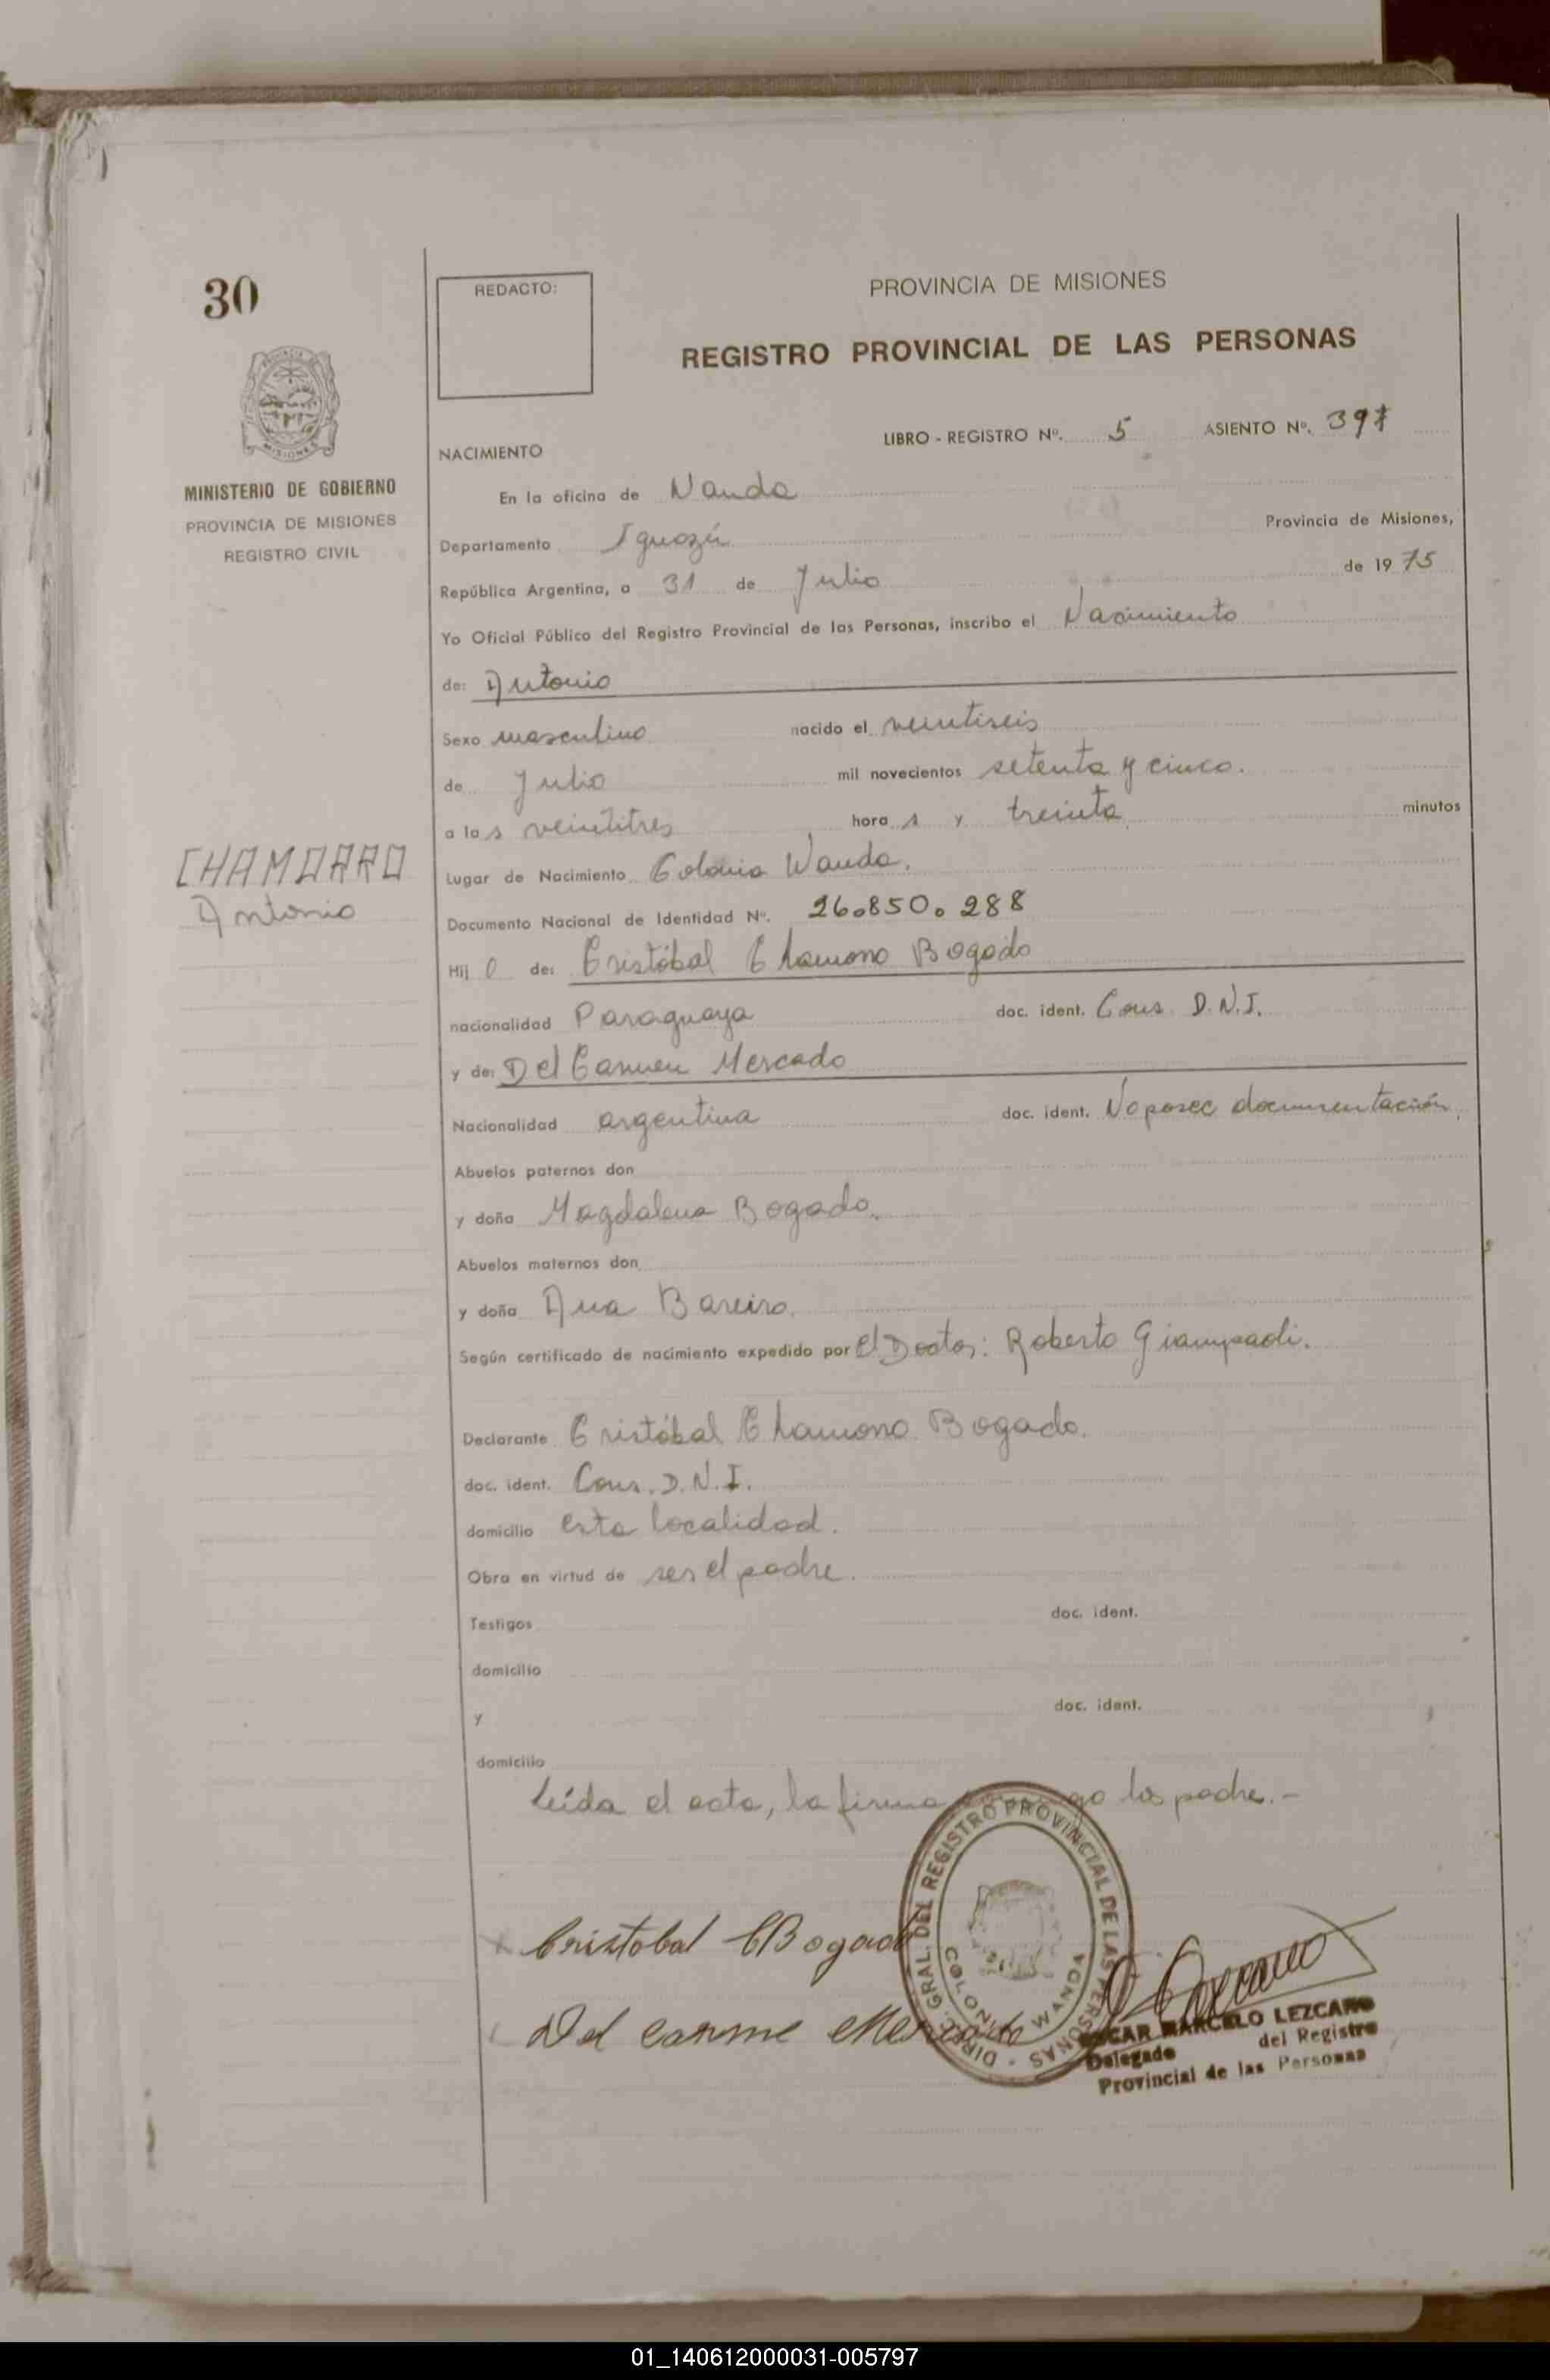 30
REDACTO:
PROVINCIA DE MISIONES
REGISTRO PROVINCIAL DE LAS PERSONAS
MINISTERIO DE GOBIERNO
PROVINCIA DE MISIONES
REGISTRO CIVIL
LIBRO - REGISTRO Nº. 5 ASIENTO Nº. 397
NACIMIENTO
En la oficina de Wanda
Departamento Iguazú Provincia de Misiones,
República Argentina, a 31 de Julio de 19 75
Yo Oficial Público del Registro Provincial de las Personas, inscribo el Nacimiento
de: Antonio
Sexo masculino nacido el veintiseis
de Julio mil novecientos setenta y cinco.
a las veintitres hora s y treinta minutos
CHAMORRO
Antonio
Lugar de Nacimiento Colonia Wanda.
Documento Nacional de Identidad Nº. 26.850.288
Hij o de: Cristóbal Chamorro Bogado
nacionalidad Paraguaya doc. ident. Cons. D.N.I.
y de: Del Carmen Mercado
Nacionalidad argentina doc. ident. No posee documentación.
Abuelos paternos don
y doña Magdalena Bogado.
Abuelos maternos don
y doña Ana Bareiro.
Según certificado de nacimiento expedido por el Doctor: Roberto Giampaoli.
Declarante Cristóbal Chamorro Bogado.
doc. ident. Cons. D.N.I.
domicilio esta localidad.
Obra en virtud de ser el padre.
Testigos doc. ident.
domicilio
y doc. ident.
domicilio
Leída el acta, la firma los padre.-
DIREC. GRAL. DEL REGISTRO PROVINCIAL DE LAS PERSONAS
COLONIA WANDA
Cristobal CBogado
Del carme Mercado
OSCAR MARCELO LEZCANO
Delegado del Registro
Provincial de las Personas
01_140612000031-005797